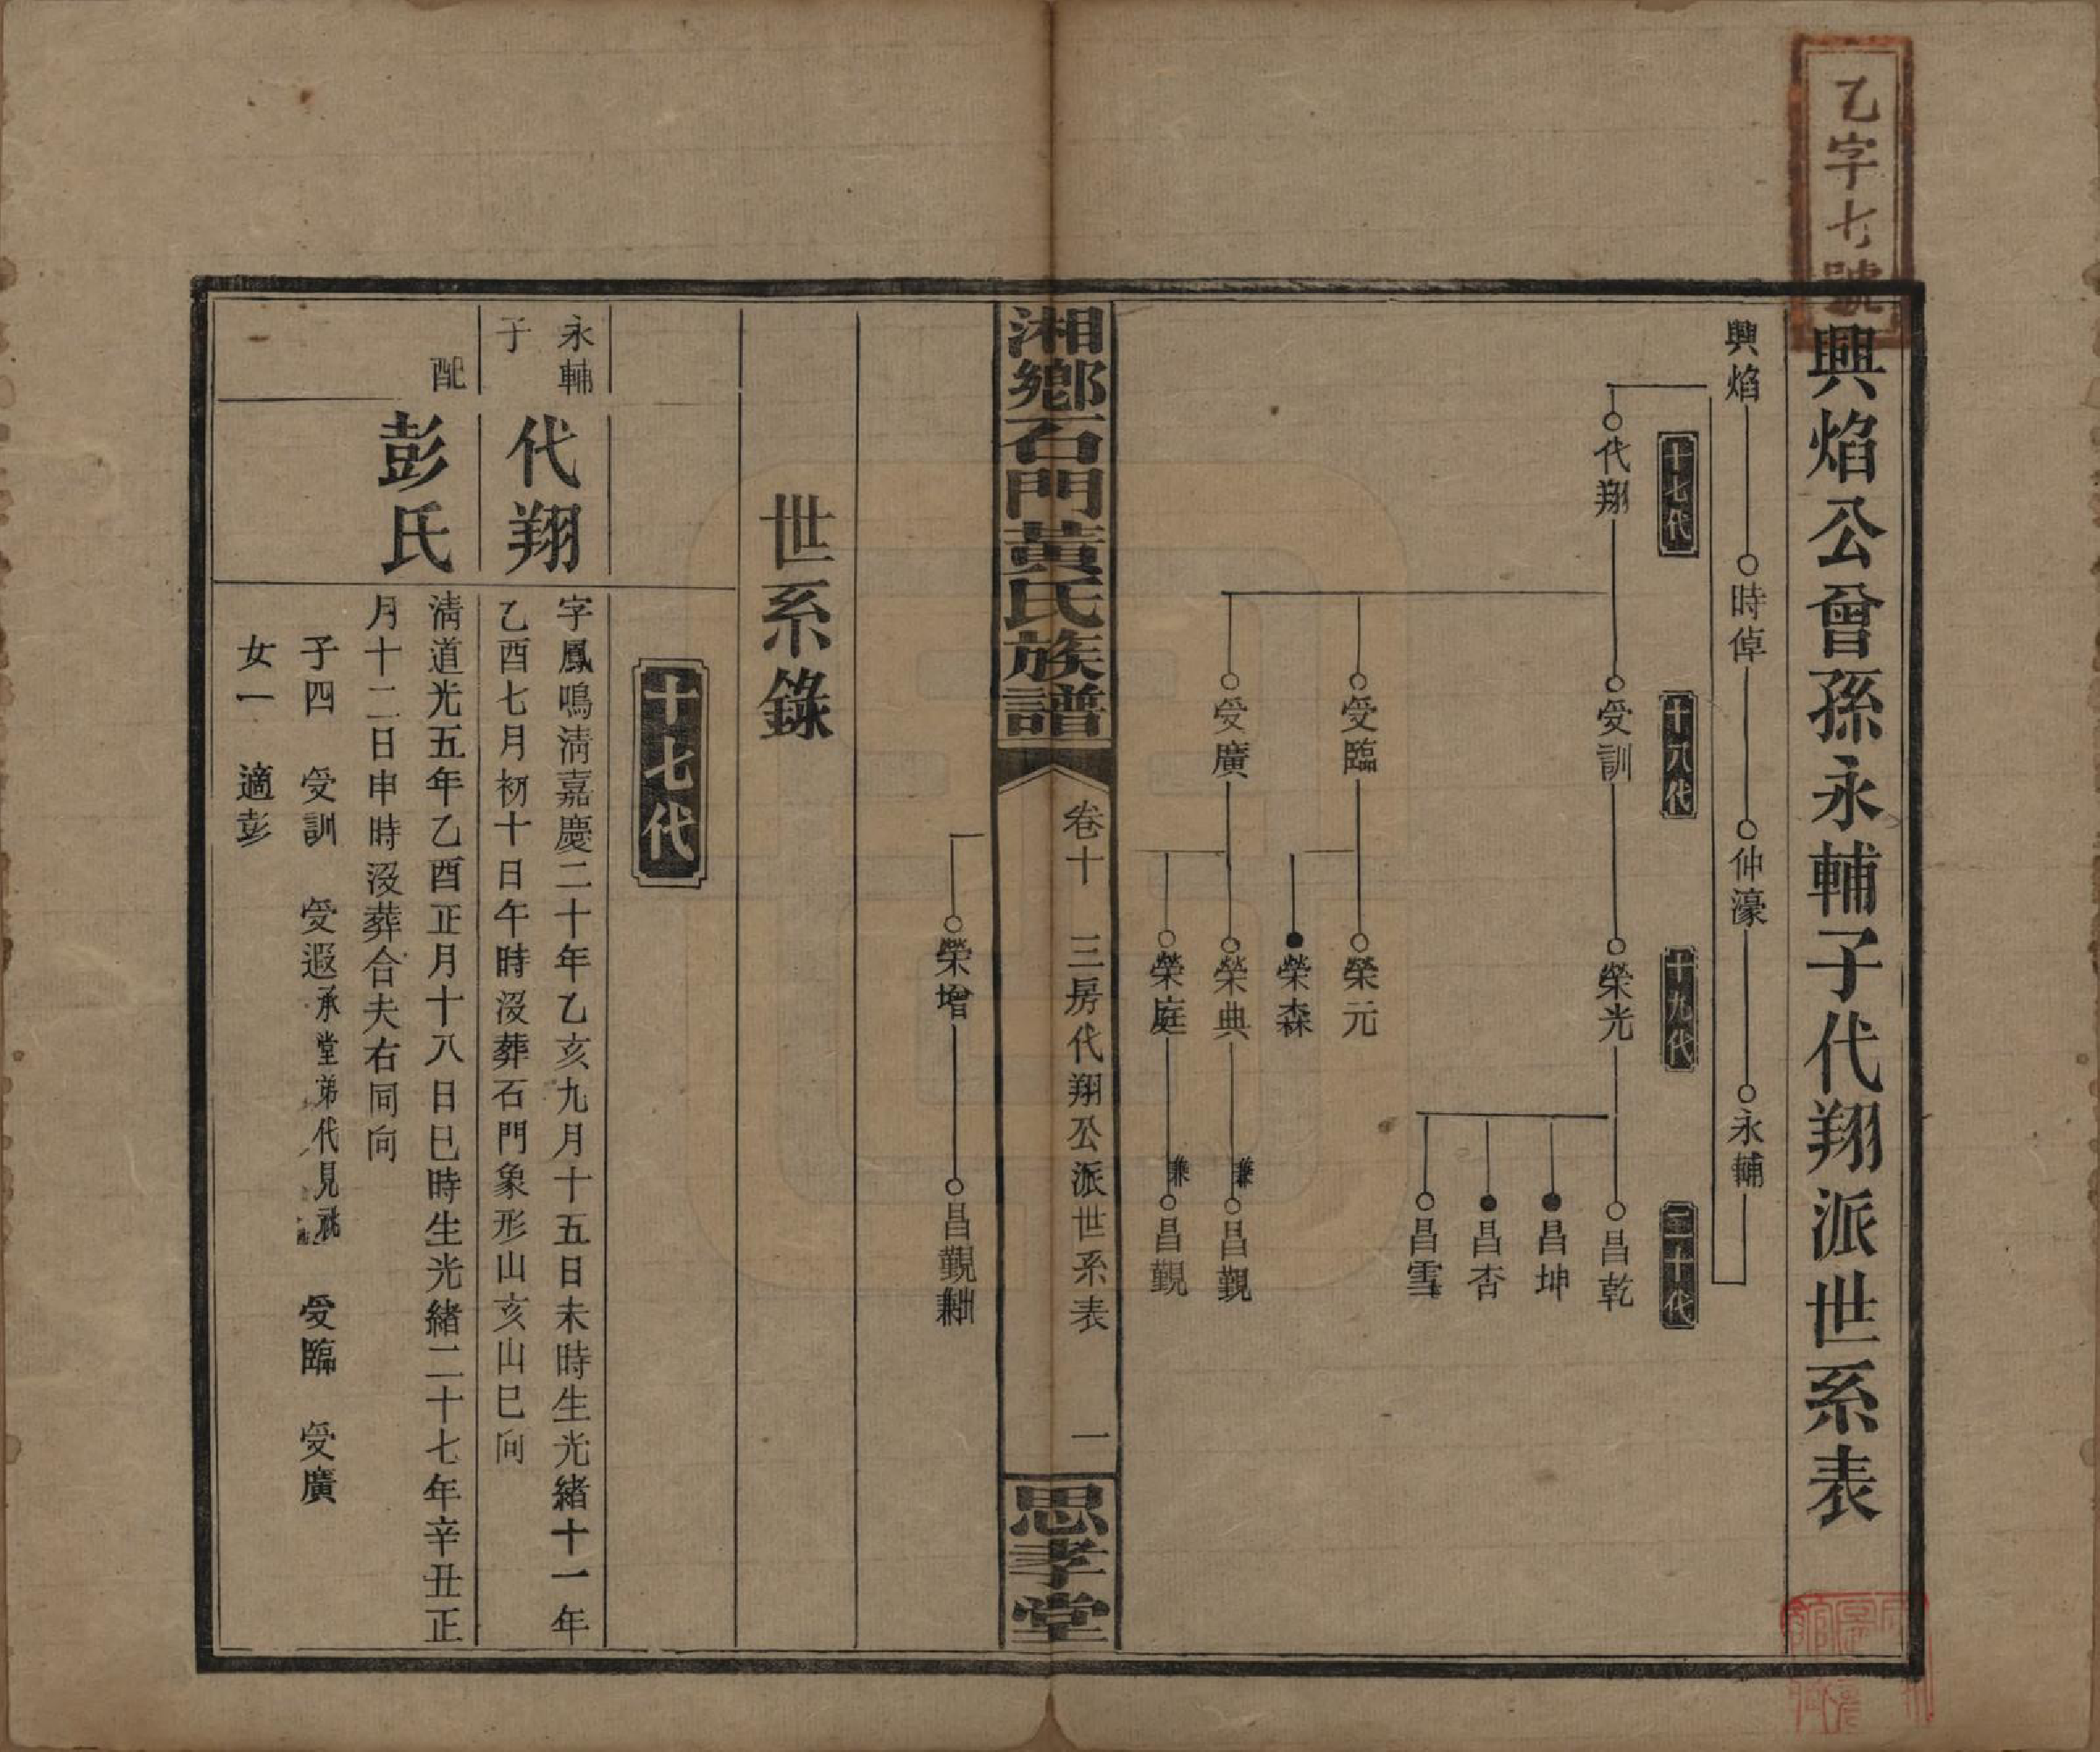 乙字七號
興焰公曾孫永輔子代翔派世系表
興焰
時倬
仲濠
永輔
十七代
十八代
十九代
二十代
代翔
受訓
榮光
昌乾
昌坤
昌杏
昌雪
受臨
榮元
榮森
受廣
榮典
兼
昌覲
榮庭
兼
昌覲
湘鄉石門黃氏族譜
卷十
三房代翔公派世系表
一
思孝堂
榮增
昌覲兼祧
世系錄
十七代
永輔
子
代翔
字鳳鳴清嘉慶二十年乙亥九月十五日未時生光緒十一年
乙酉七月初十日午時沒葬石門象形山亥山巳向
配
彭氏
清道光五年乙酉正月十八日巳時生光緒二十七年辛丑正
月十二日申時沒葬合夫右同向
子四 受訓 受遐承堂弟代見祧 受臨 受廣
女一 適彭